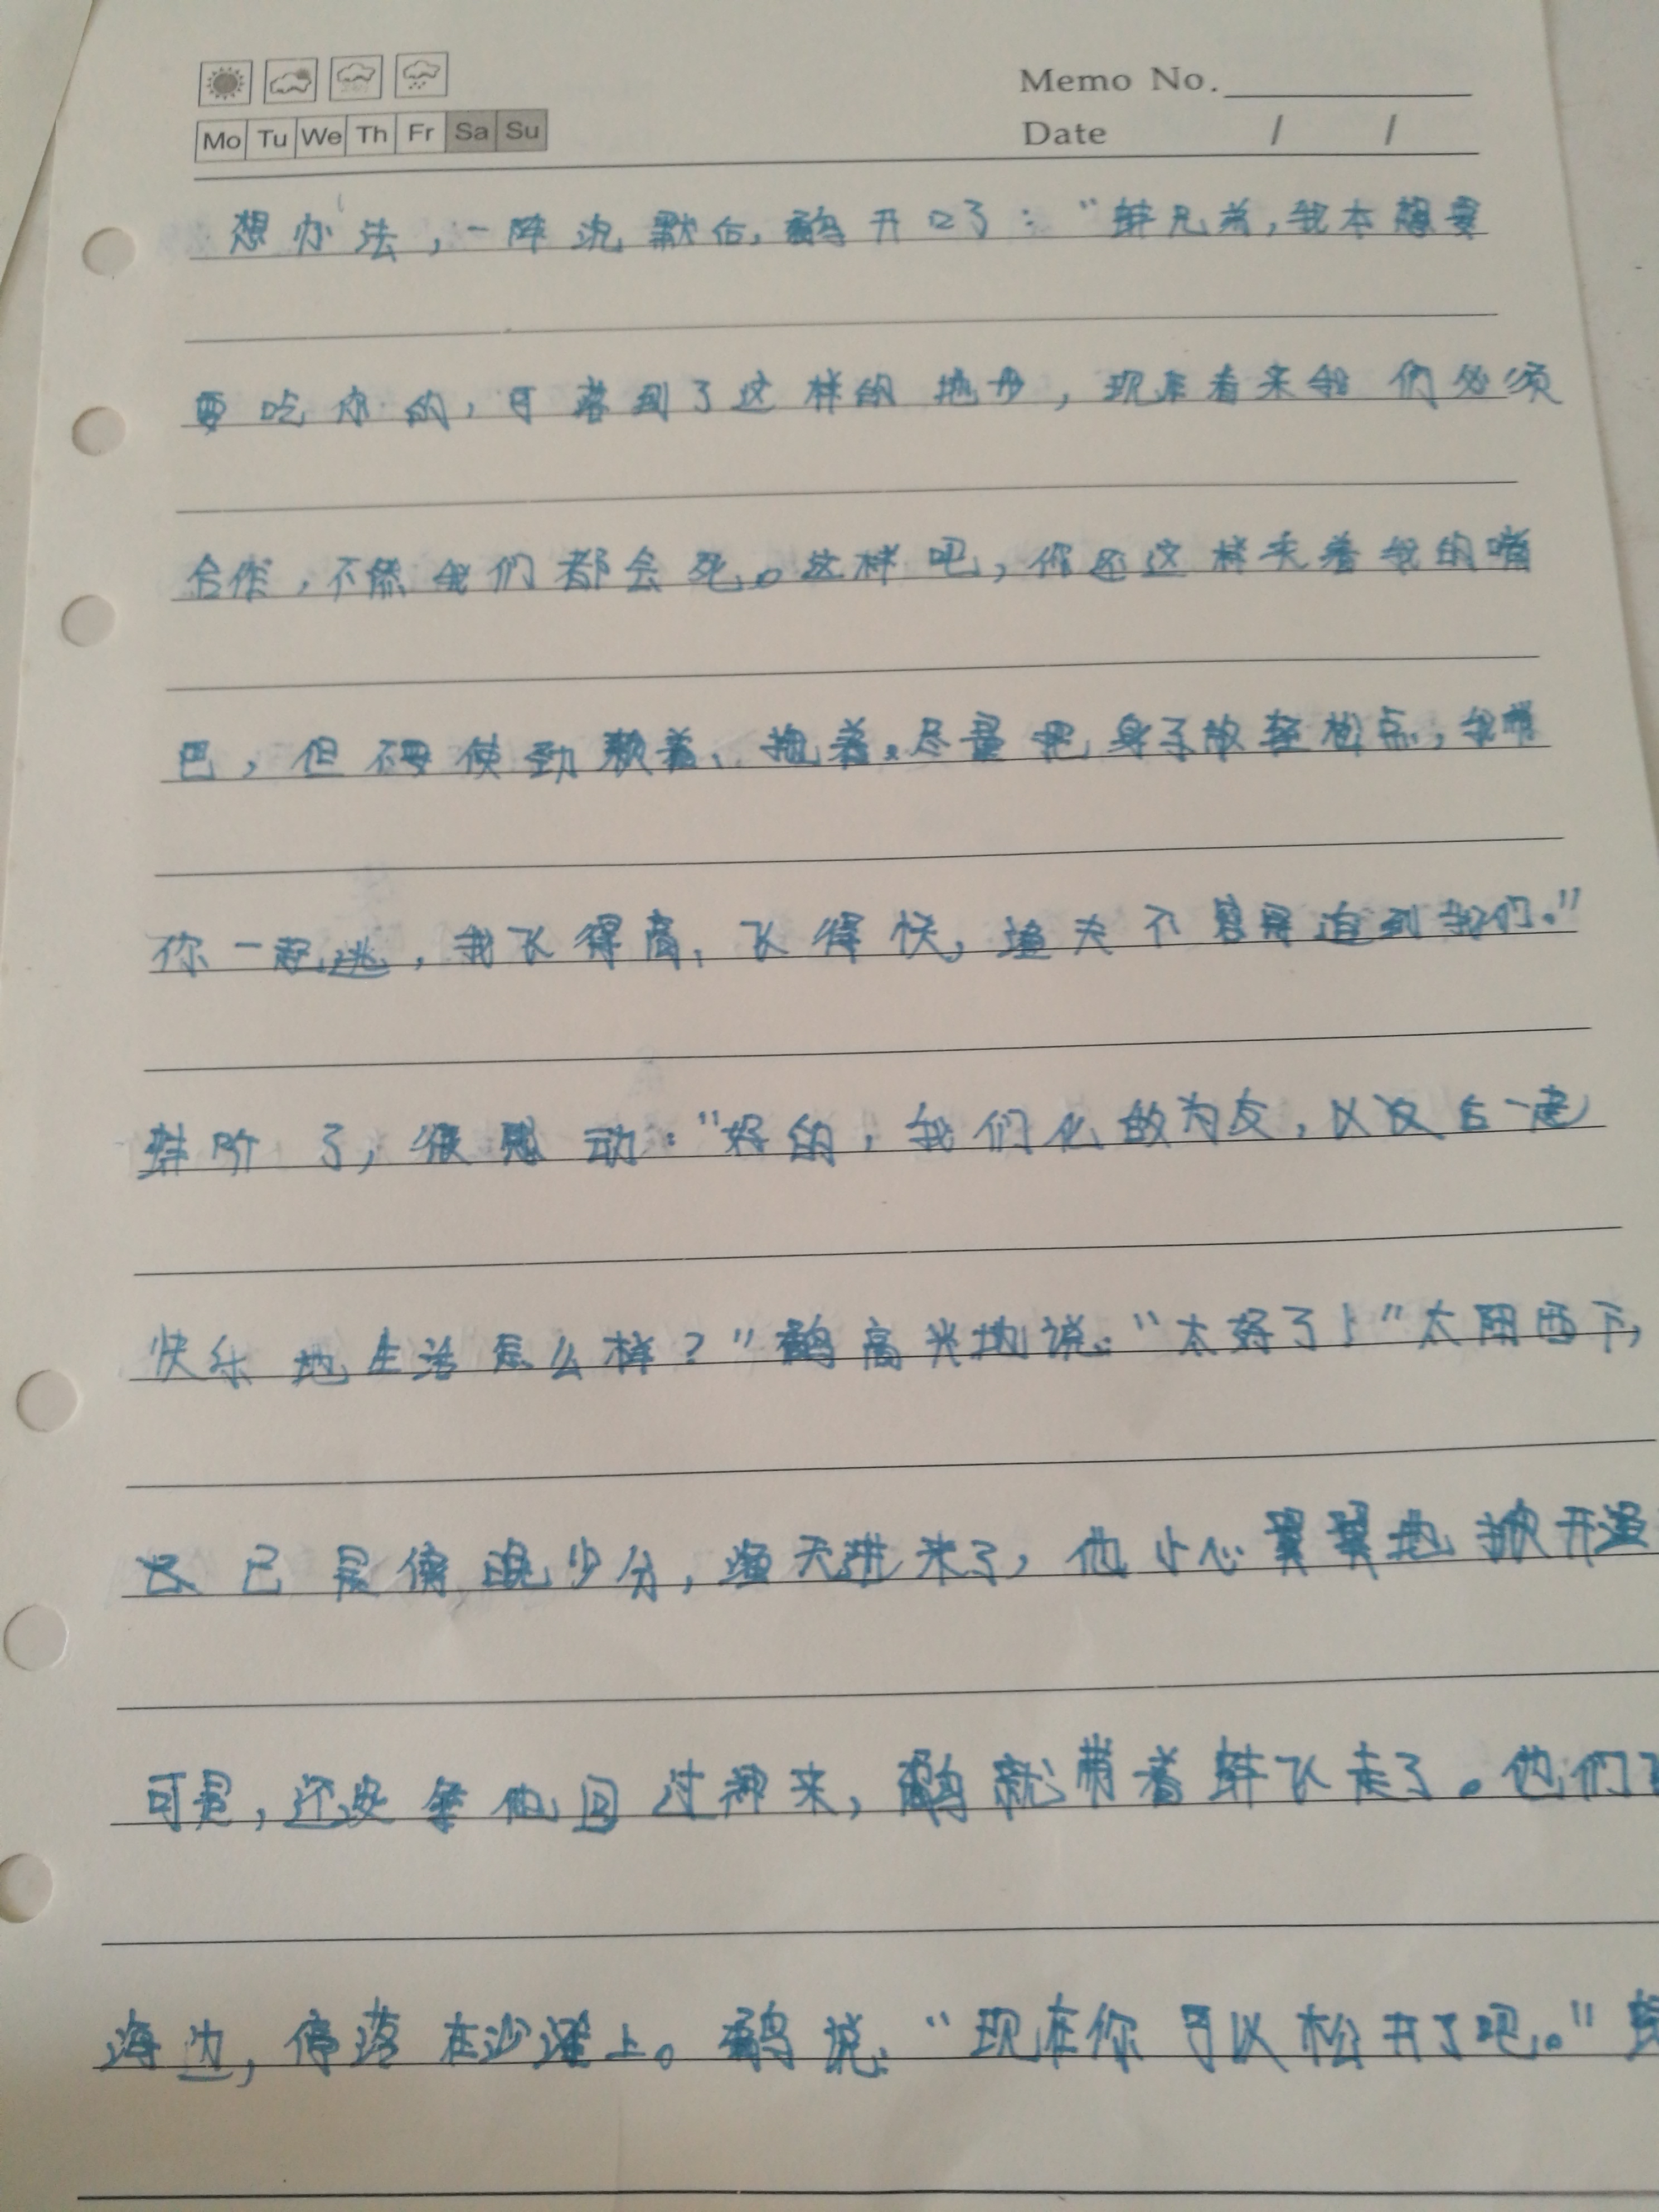 Memo No.
Mo Tu We Th Fr Sa Su
Date / /
想办法，一阵沉默后，鹬开口了：“蚌兄弟，我本想要
要吃你的，可落到了这样的地步，现在看来我们必须
合作，不然我们都会死。这样吧，你还这样夹着我的嘴
巴，但不要使劲、拖着。尽量把身子放轻松点，我带
你一起逃，我飞得高、飞得快，渔夫不容易追到我们。”
蚌听了，很感动：“好的，我们化敌为友，以后一起
快乐地生活怎么样？”鹬高兴地说：“太好了！”太阳西下，
已是傍晚少分，渔夫进来了，他小心翼翼地掀开渔
可是，还没等他回过神来，鹬就带着蚌飞走了。他们
海边，停落在沙滩上。鹬说：“现在你可以松开了吧。”